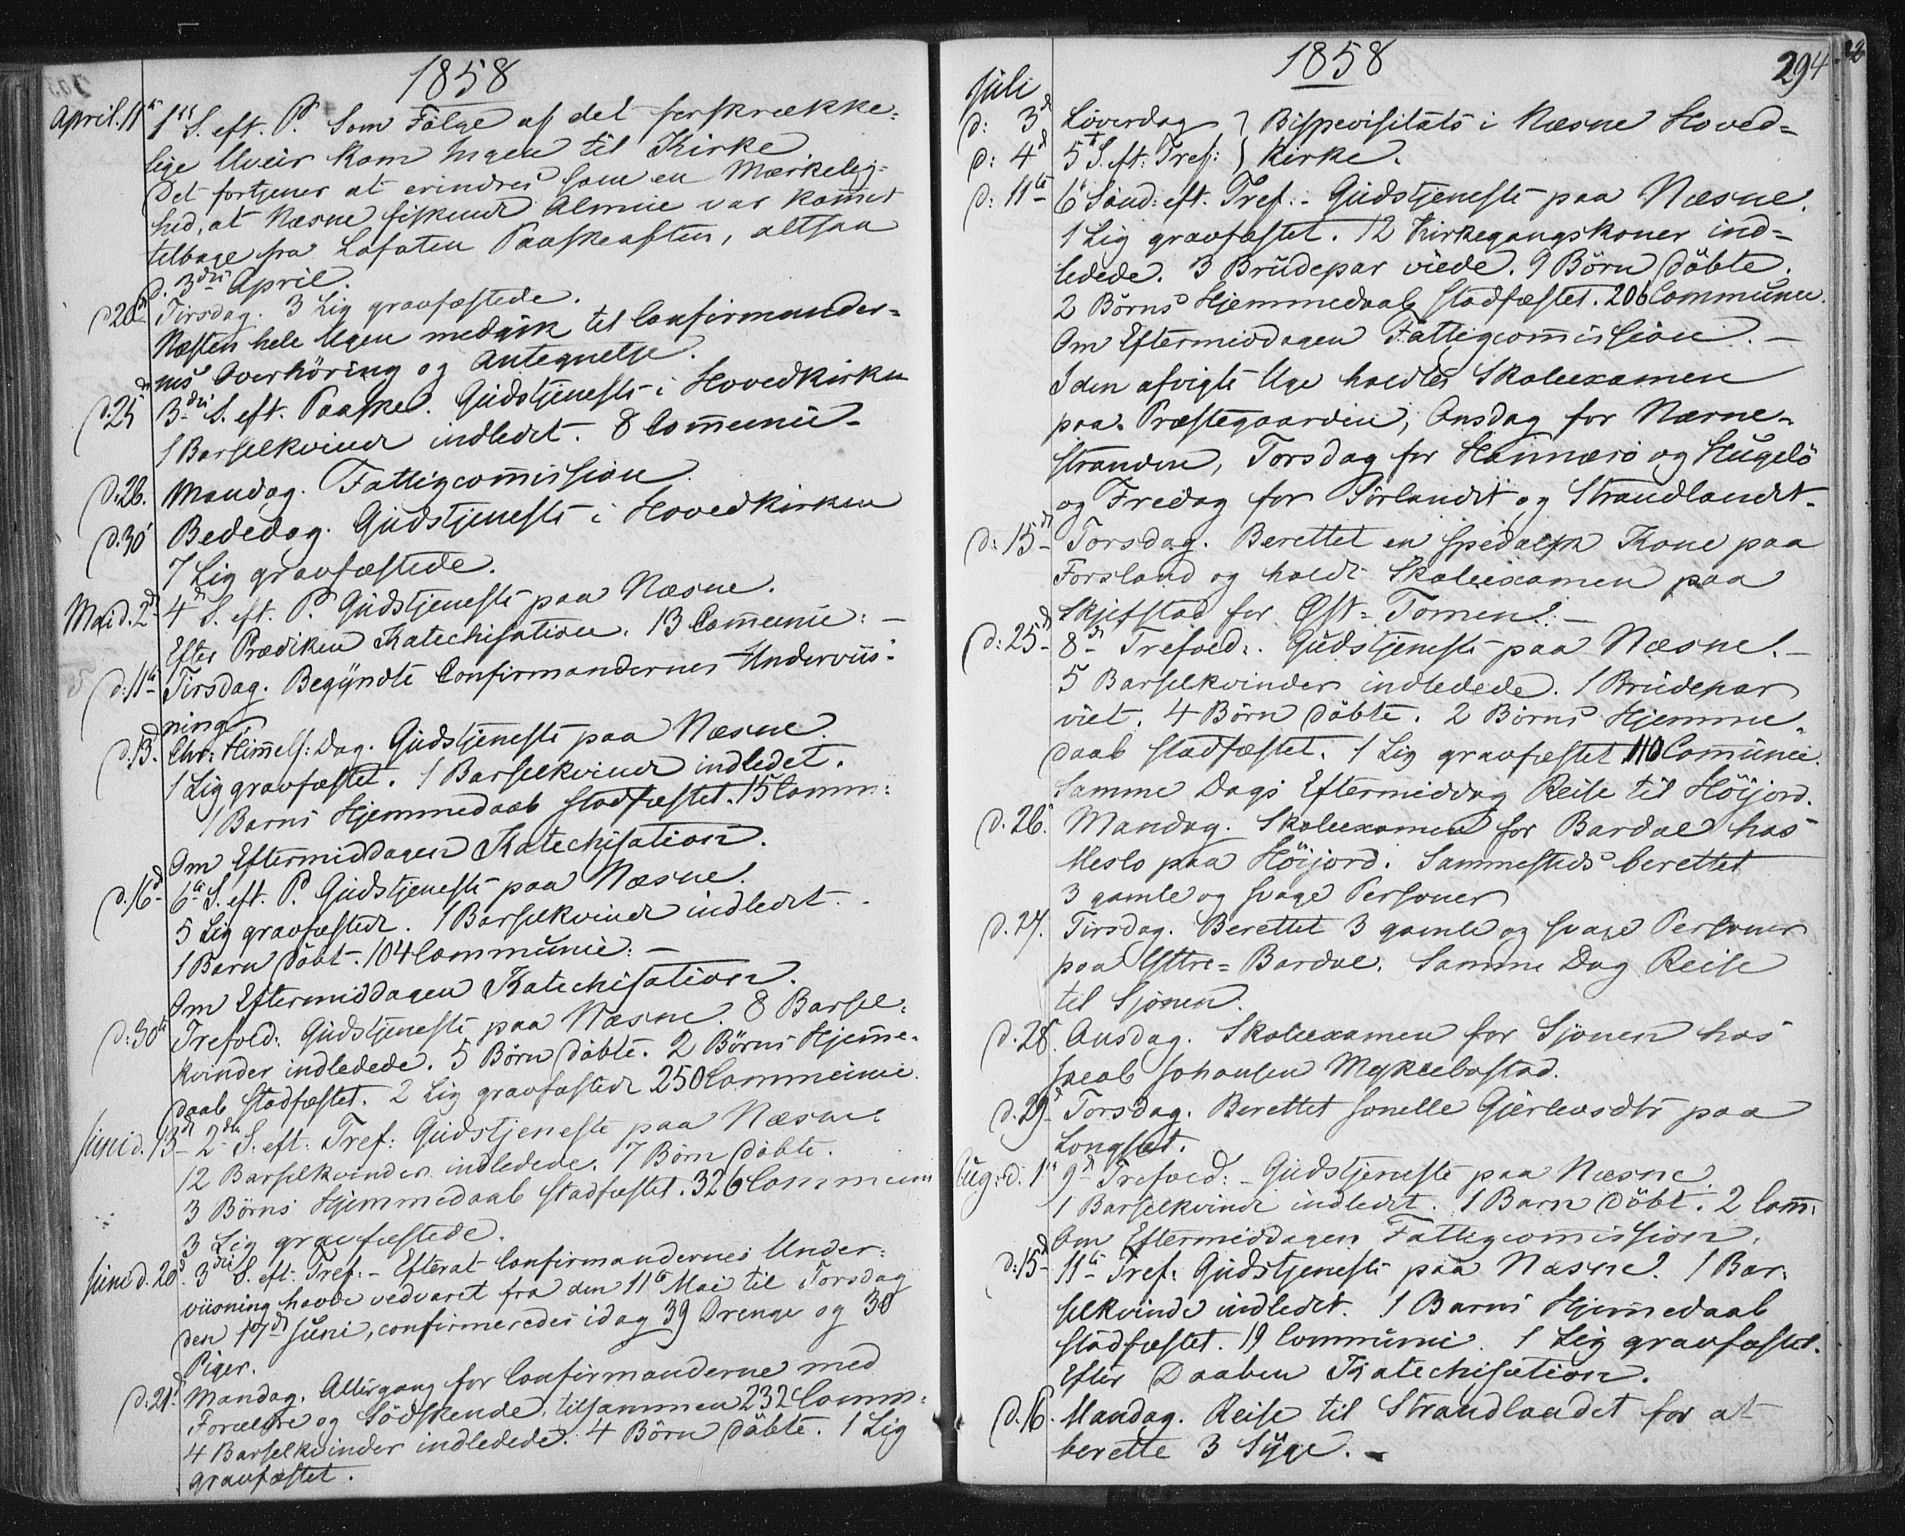 1858
April. 11te 1ste S. eft. P. Som Følge af det forskrække-
lige Uveir kom Ingen til Kirke
Det fortjener at erindres som en Mærkelig-
hed, at Næsne fiskende Almue var kommet
tilbage fra Lofoten Paaskeaften, altsaa
d. 3die April.
d. 20d Tirsdag. 3 Lig gravfæstede.
Næsten hele Ugen medgik til Confirmander-
nes Overhøring og Antegnelse.
d. 25d 3die S. eft. Paaske. Gudstjeneste i Hovedkirken
1 Barselkvinde indledet. 8 Communi-
d. 26. Mandag. Fattigcommission.
d. 30 Bededag. Gudstjeneste i Hovedkirken
7 Lig gravfæstede.
Mai d. 2d 4d S. eft. P. Gudstjeneste paa Næsne.
Efter Prædiken Katechisation. 13 Communi: -
d: 11te Tirsdag. Begyndte Confirmandernes Underviis-
ning.
d. 13d Chr: Himmelf: Dag. Gudstjeneste paa Næsne.
1 Lig gravfæstet. 1 Barselkvinde indledet.
1 Barns Hjemmedaab stadfæstet. 15 Comm:
Om Eftermiddagen Katechisation.
d. 16d 6te S. eft. P. Gudstjeneste paa Næsne.
5 Lig gravfæstede. 1 Barselkvinde indledet.
1 Barn døbt. 104 Communi: -
Om Eftermiddagen Katechisation.
d: 30te Trefold: Gudstjeneste paa Næsne. 8 Barsel-
kvinder indledede. 5 Børn døbte. 2 Børns Hjemme-
daab stadfæstet. 2 Lig gravfæstede 250 Communi.
Juni d. 13d 2den S. eft. Tref: Gudstjeneste paa Næsne
12 Barselkvinder indledede. 7 Børn døbte.
3 Børns Hjemmedaab stadfæstet. 326 Communi
3 Lig gravfæstede.
Juni d. 20d 3die S. eft. Tref: - Efterat Confirmandernes Under-
viisning havde vedvaret fra den 11te Mai til Torsdag
den 17d Juni, confirmeredes idag 39 Drenge og 30
Piger.
d. 21d Mandag. Altergang for Confirmanderne med
Forældre og Sødskende, tilsammen 232 Comm.
4 Barselkvinder indledede. 4 Børn døbte. 1 Lig
gravfæstet.
1858
294
Juli
d: 3d Løverdag } Bispevisitats i Næsne Hoved-
d: 4d 5t S. eft: Tref: } Kirke.
d: 11te 6t Sønd: eft. Tref: - Gudstjeneste paa Næsne.
1 Lig gravfæstet. 12 Kirkegangskoner ind-
ledede. 3 Brudepar viede. 9 Børn døbte.
2 Børns Hjemmedaab stadfæstet. 206 Communi.
Om Eftermiddagen Fattigcommission. -
I den afvigte Uge holdtes Skoleexamen
paa Præstegaarden, Onsdag for Nærne-
stranden, Torsdag for Hannærø og Hugelø
og Fredag for Sørlandet og Strandlandet.
d: 15d Torsdag. Berettet en spedalsk Kone paa
Forsland og holdt Skoleexamen paa
Skjefstad for Øst-Tomen. -
d: 25d 8d Trefold: Gudstjeneste paa Næsne. -
5 Barselkvinder indledede. 1 Brudepar
viet. 4 Børn døbte. 2 Børns Hjemme-
daab stadfæstet. 1 Lig gravfæstet 110 Communi.
Samme Dags Eftermiddag Reise til Høijord.
d. 26. Mandag. Skoleexamen for Bardal hos
Meslo paa Høijord. Sammesteds berettet
3 gamle og svage Personer
d. 27. Tirsdag. Berettet 3 gamle og svage Personer
paa Yttre-Bardal. Samme Dag Reise
til Sjonen.
d. 28. Onsdag. Skoleexamen for Sjonen hos
Jacob Johansen Myklebostad.
d. 29d Torsdag. Berettet Jonelle Gjerløvsdtr paa
Longset.
Aug: d. 1ste 9d Trefold: - Gudstjeneste paa Næsne.
1 Barselkvinde indledet. 1 Barn døbt. 2 Comm.
Om Eftermiddagen Fattigcommission.
d: 15d 11te Tref: Gudstjeneste paa Næsne. 1 Bar-
selkvinde indledet. 1 Barns Hjemmedaab
stadfæstet. 19 Communi. 1 Lig gravfæstet.
Efter Daaben Katechisation.
d. 16. Mandag. Reise til Strandlandet for at
berette 3 Syge. -